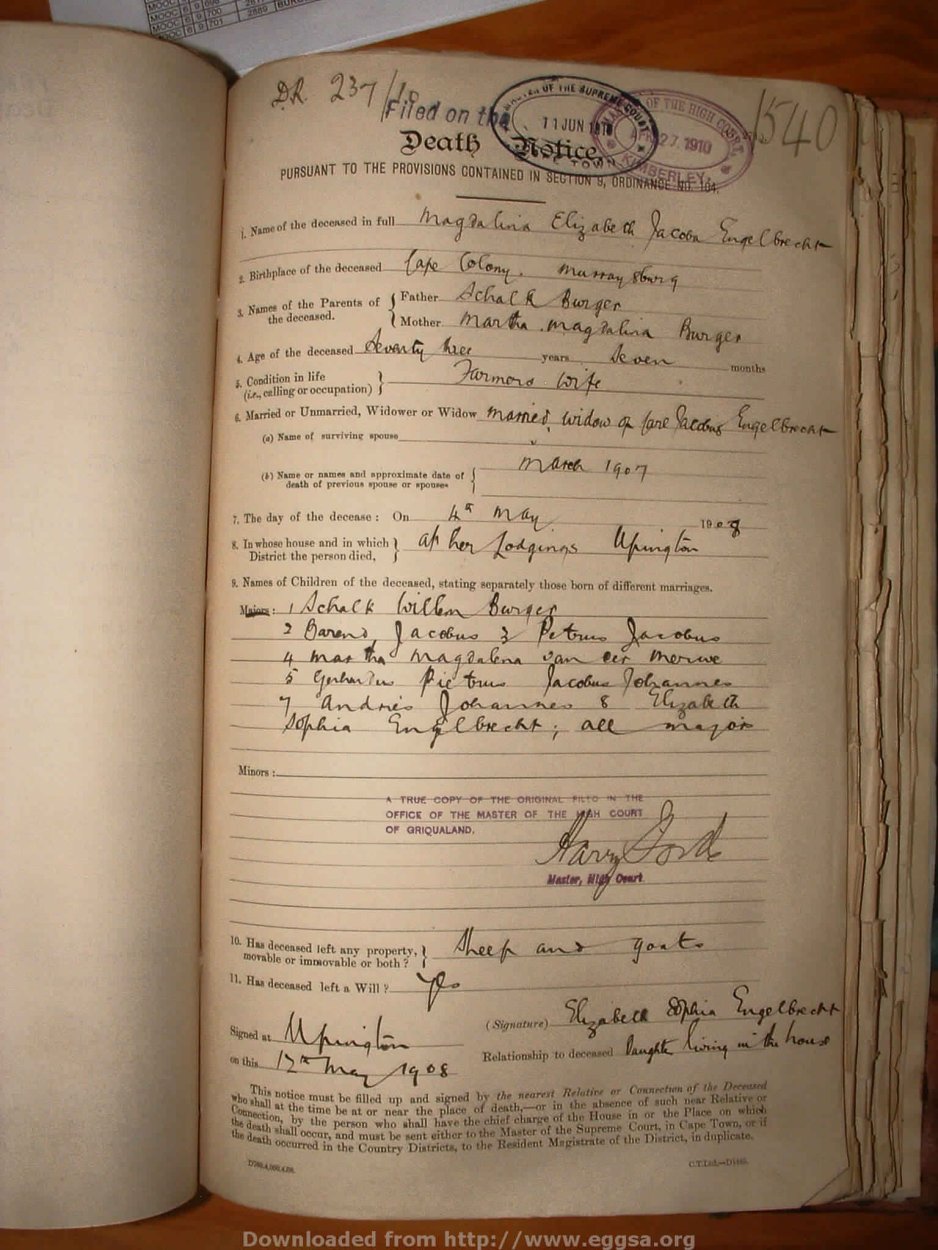 MOOC 6 9 698
MOOC 6 9 700
MOOC 6 9 701 2889
DR 237/10
Filed on the
MASTER OF THE SUPREME COURT
11 JUN 1910
CAPE TOWN
OF THE HIGH COURT
27. 1910
KIMBERLEY.
1540
Death Notice,
PURSUANT TO THE PROVISIONS CONTAINED IN SECTION 9, ORDINANCE NO. 104.
1. Name of the deceased in full Magdalina Elizabeth Jacoba Engelbrecht
2. Birthplace of the deceased Cape Colony. Murraysburg
3. Names of the Parents of the deceased. Father Schalk Burger
Mother Martha Magdalina Burger
4. Age of the deceased Seventy three years Seven months
5. Condition in life (i.e., calling or occupation) Farmers wife
6. Married or Unmarried, Widower or Widow Married, widow of Carl Jacobus Engelbrecht
(a) Name of surviving spouse
(b) Name or names and approximate date of death of previous spouse or spouses March 1907
7. The day of the decease: On 4th May 1908
8. In whose house and in which District the person died, at her Lodgings Upington
9. Names of Children of the deceased, stating separately those born of different marriages.
Majors: 1 Schalk Willem Burger
2 Barend Jacobus 3 Petrus Jacobus
4 Martha Magdalena van der Merwe
5 Gerhardus Pietrus Jacobus Johannes
7 Andries Johannes 8 Elizabeth
Sophia Engelbrecht; all major
Minors:
A TRUE COPY OF THE ORIGINAL FILED IN THE
OFFICE OF THE MASTER OF THE HIGH COURT
OF GRIQUALAND.
Harry
Master, High Court
10. Has deceased left any property, movable or immovable or both? Sheep and goats
11. Has deceased left a Will? Yes
(Signature) Elizabeth Sophia Engelbrecht
Signed at Upington
Relationship to deceased daughter living in the house
on this 12th May 1908
This notice must be filled up and signed by the nearest Relative or Connection of the Deceased
who shall at the time be at or near the place of death,—or in the absence of such near Relative or
Connection, by the person who shall have the chief charge of the House in or the Place on which
the death shall occur, and must be sent either to the Master of the Supreme Court, in Cape Town, or if
the death occurred in the Country Districts, to the Resident Magistrate of the District, in duplicate.
Downloaded from http://www.eggsa.org